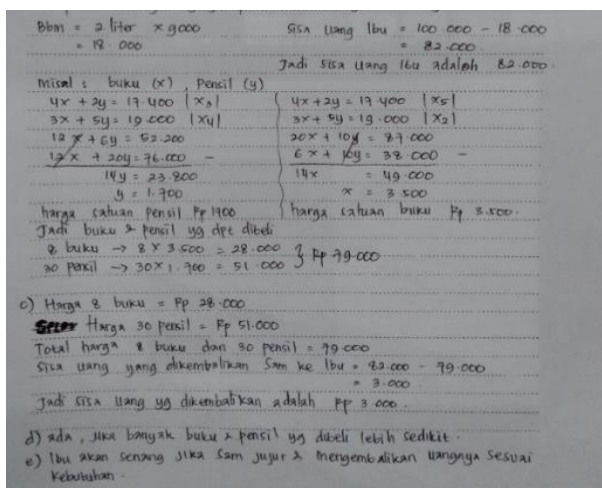 Bbm = 2 liter x 9000
= 18.000
Sisa uang Ibu = 100.000 - 18.000
= 82.000
Jadi sisa uang Ibu adalah 82.000.
Misal : buku (x), Pensil (y)
4x + 2y = 17.400 | x3 |
3x + 5y = 19.000 | x4 |
12x + 6y = 52.200
12x + 20y = 76.000 -
14y = 23.800
y = 1.700
harga satuan pensil Rp 1700
4x + 2y = 17.400 | x5 |
3x + 5y = 19.000 | x2 |
20x + 10y = 87.000
6x + 10y = 38.000 -
14x = 49.000
x = 3.500
harga satuan buku Rp 3.500.
Jadi buku & pencil yg dpt dibeli
8 buku → 8 x 3.500 = 28.000
30 pensil → 30 x 1.700 = 51.000 } Rp 79.000
c) Harga 8 buku = Rp 28.000
Harga 30 pensil = Rp 51.000
Total harga 8 buku dan 30 pensil = 79.000
Sisa uang yang dikembalikan Sam ke Ibu = 82.000 - 79.000
= 3.000
Jadi sisa uang yg dikembalikan adalah Rp 3.000.
d) ada, jika banyak buku & pensil yg dibeli lebih sedikit.
e) Ibu akan senang jika Sam jujur & mengembalikan uangnya sesuai
kebutuhan.